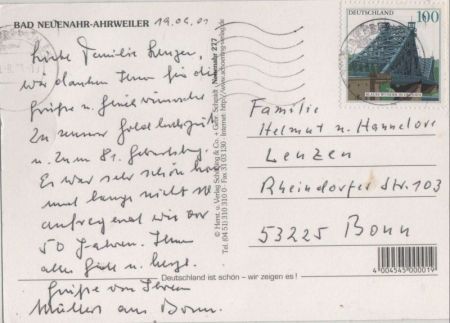 BAD NEUENAHR-AHRWEILER 19.04.01
Liebe Familie Lenzen,
wir danken Ihnen für die
Grüße u. Glückwünsche
zu unserer Goldhochzeit
u. zum 81. Geburtstag.
Es war sehr schön
und lange nicht so
aufregend wie vor
50 Jahren. Ihnen
alles Gute u. herzl.
Grüße von Ihren
Müllers aus Bonn.
© Herst. u. Verlag Schöning & Co. + Gebr. Schmidt, Neuenahr 277
Tel. (04 51) 310 310 0 · Fax 31 03 130 · Internet http://www.schoening-verlag.de
DEUTSCHLAND 100
Familie
Helmut u. Hannelore
Lenzen
Rheindorfer Str. 103
53225 Bonn
4 004545 000019
Deutschland ist schön – wir zeigen es !